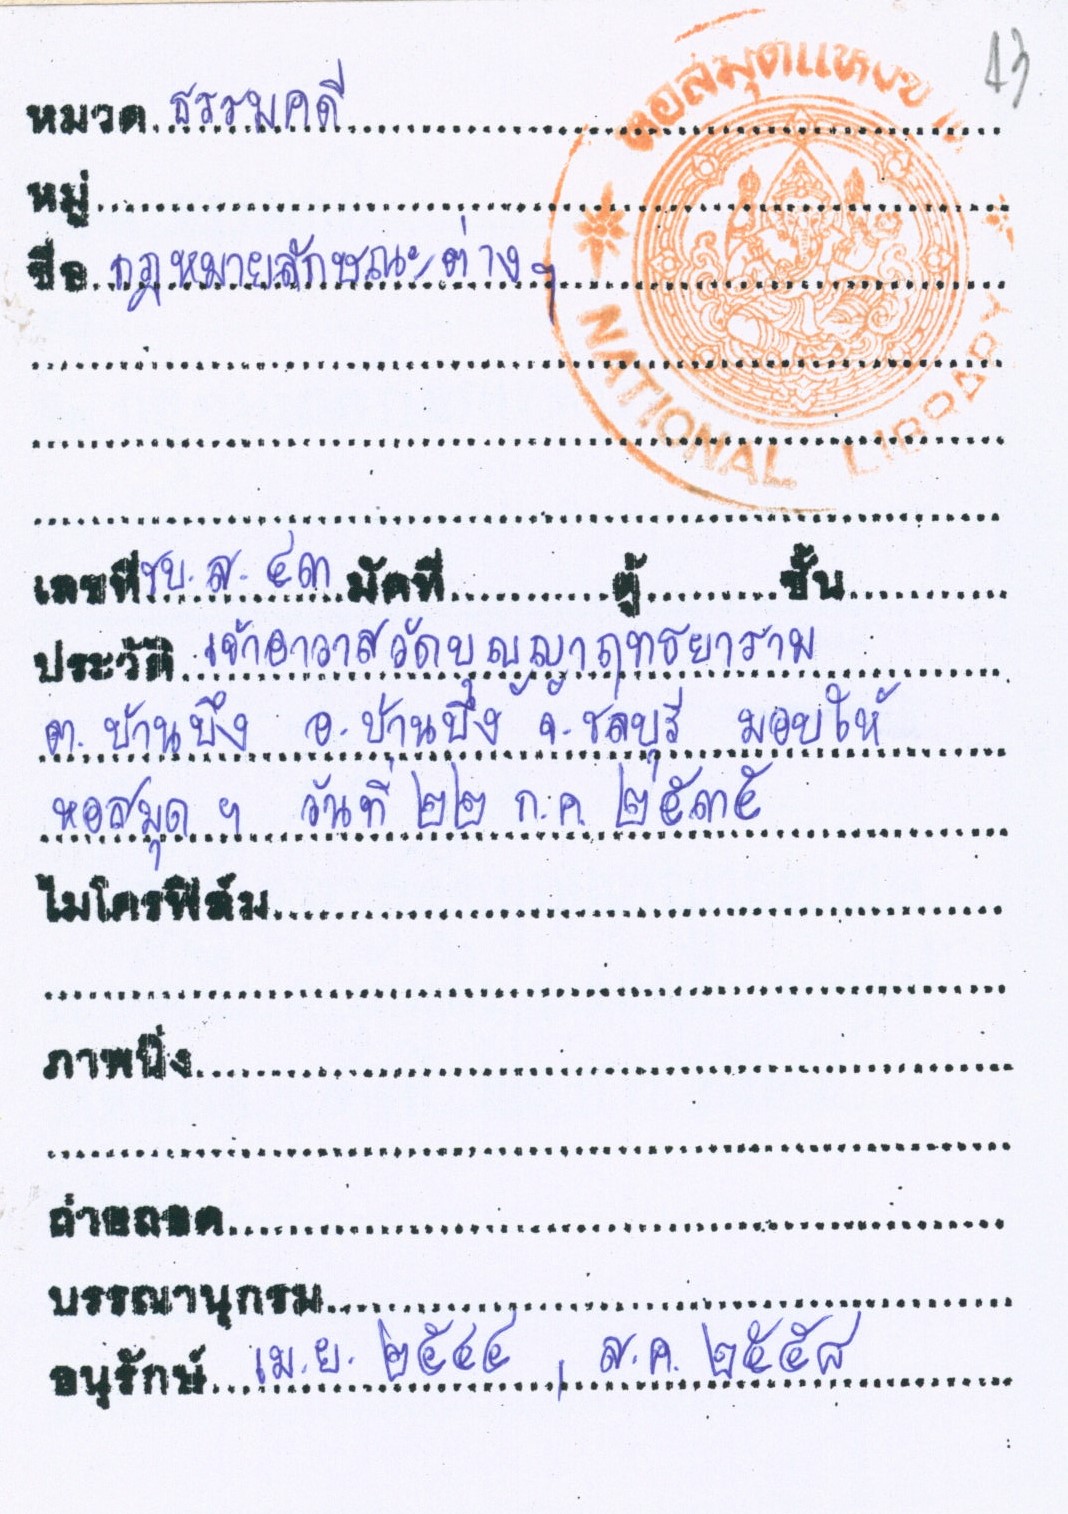 43
หอสมุดแห่งชาติ
NATIONAL LIBRARY
หมวด ธรรมคดี
หมู่
ชื่อ กฎหมายลักษณะต่าง ๆ
เลขที่ ชบ.ส. ๔๓ มัดที่ ตู้ ชั้น
ประวัติ เจ้าอาวาสวัดบุญญาฤทธยาราม
ต. บ้านบึง อ. บ้านบึง จ. ชลบุรี มอบให้
หอสมุด ฯ วันที่ ๒๒ ก.ค. ๒๕๓๕
ไมโครฟิล์ม
ภาพนิ่ง
ถ่ายถอด
บรรณานุกรม
อนุรักษ์ เม.ย. ๒๕๔๔ , ส.ค. ๒๕๕๘